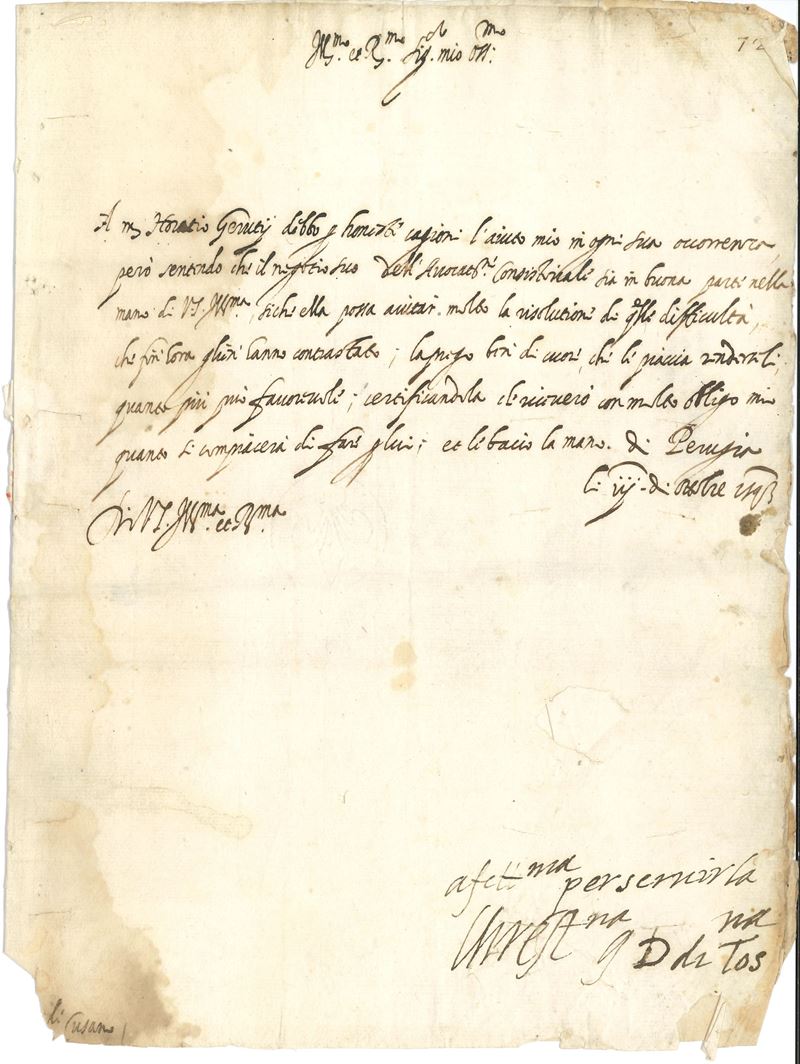 Ill.mo et R.mo Sig.r mio Oss.mo
72
A m. Horatio Gerutij debbo p honeste cagioni l'aiuto mio in ogni sua occorrenza,
però sentendo che il negotio suo dell'Avocat.ne Consistoriale sia in buona parte nella
mano di VS. Ill.ma, siche ella possa aiutar molto la risolutione di qlle difficultà,
che fin'hora gliene hanno contrastato; la prego ben di cuore, che le piaccia
quanto più può favorevole; certificandola che riceverò con molto obligo mio
quanto si compiacerà di fare p lui; et le bacio la mano. Di Perugia
li iij. di ottobre
Di VS. Ill.ma et R.ma
afeti.ma per servirla
Chrest.na D di Tos.na
li Cusano